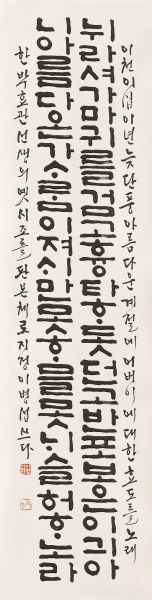 이천이십이년 늦단풍 아름다운 계절에 어버이에 대한 효도를 노래
뉘라셔가마귀를검고흉타ᄒᆞ돗던고반포보은이긔아
니아름다온가사ᄅᆞᆷ이져ᄉᆡ만못ᄒᆞᆷ을못ᄂᆡ슬허ᄒᆞ노라
한 박효관 선생의 옛시조를 판본체로 지정 이병섭 쓰다